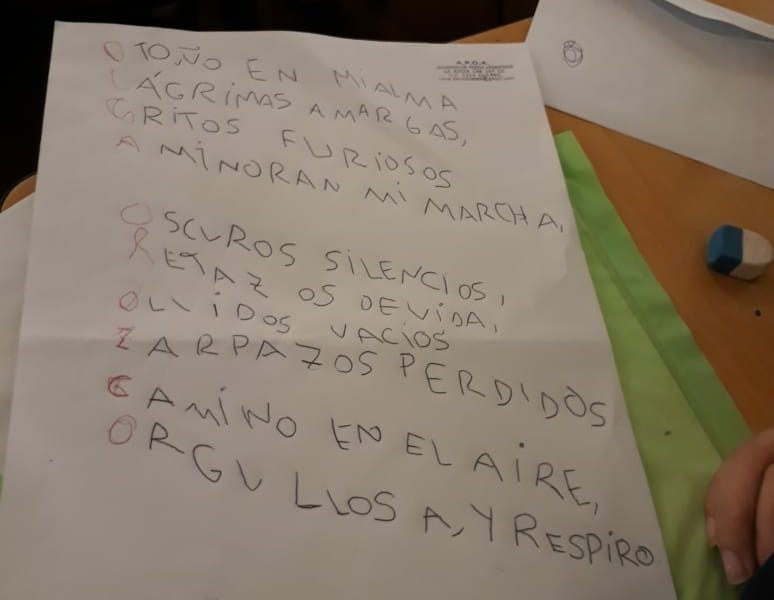 A.P.O.A.
OTOÑO EN MI ALMA
LÁGRIMAS AMARGAS,
GRITOS FURIOSOS
AMINORAN MI MARCHA,
OSCUROS SILENCIOS,
RETAZOS DE VIDA,
OLVIDOS VACIOS
ZARPAZOS PERDIDOS
CAMINO EN EL AIRE,
ORGULLOSA, Y RESPIRO